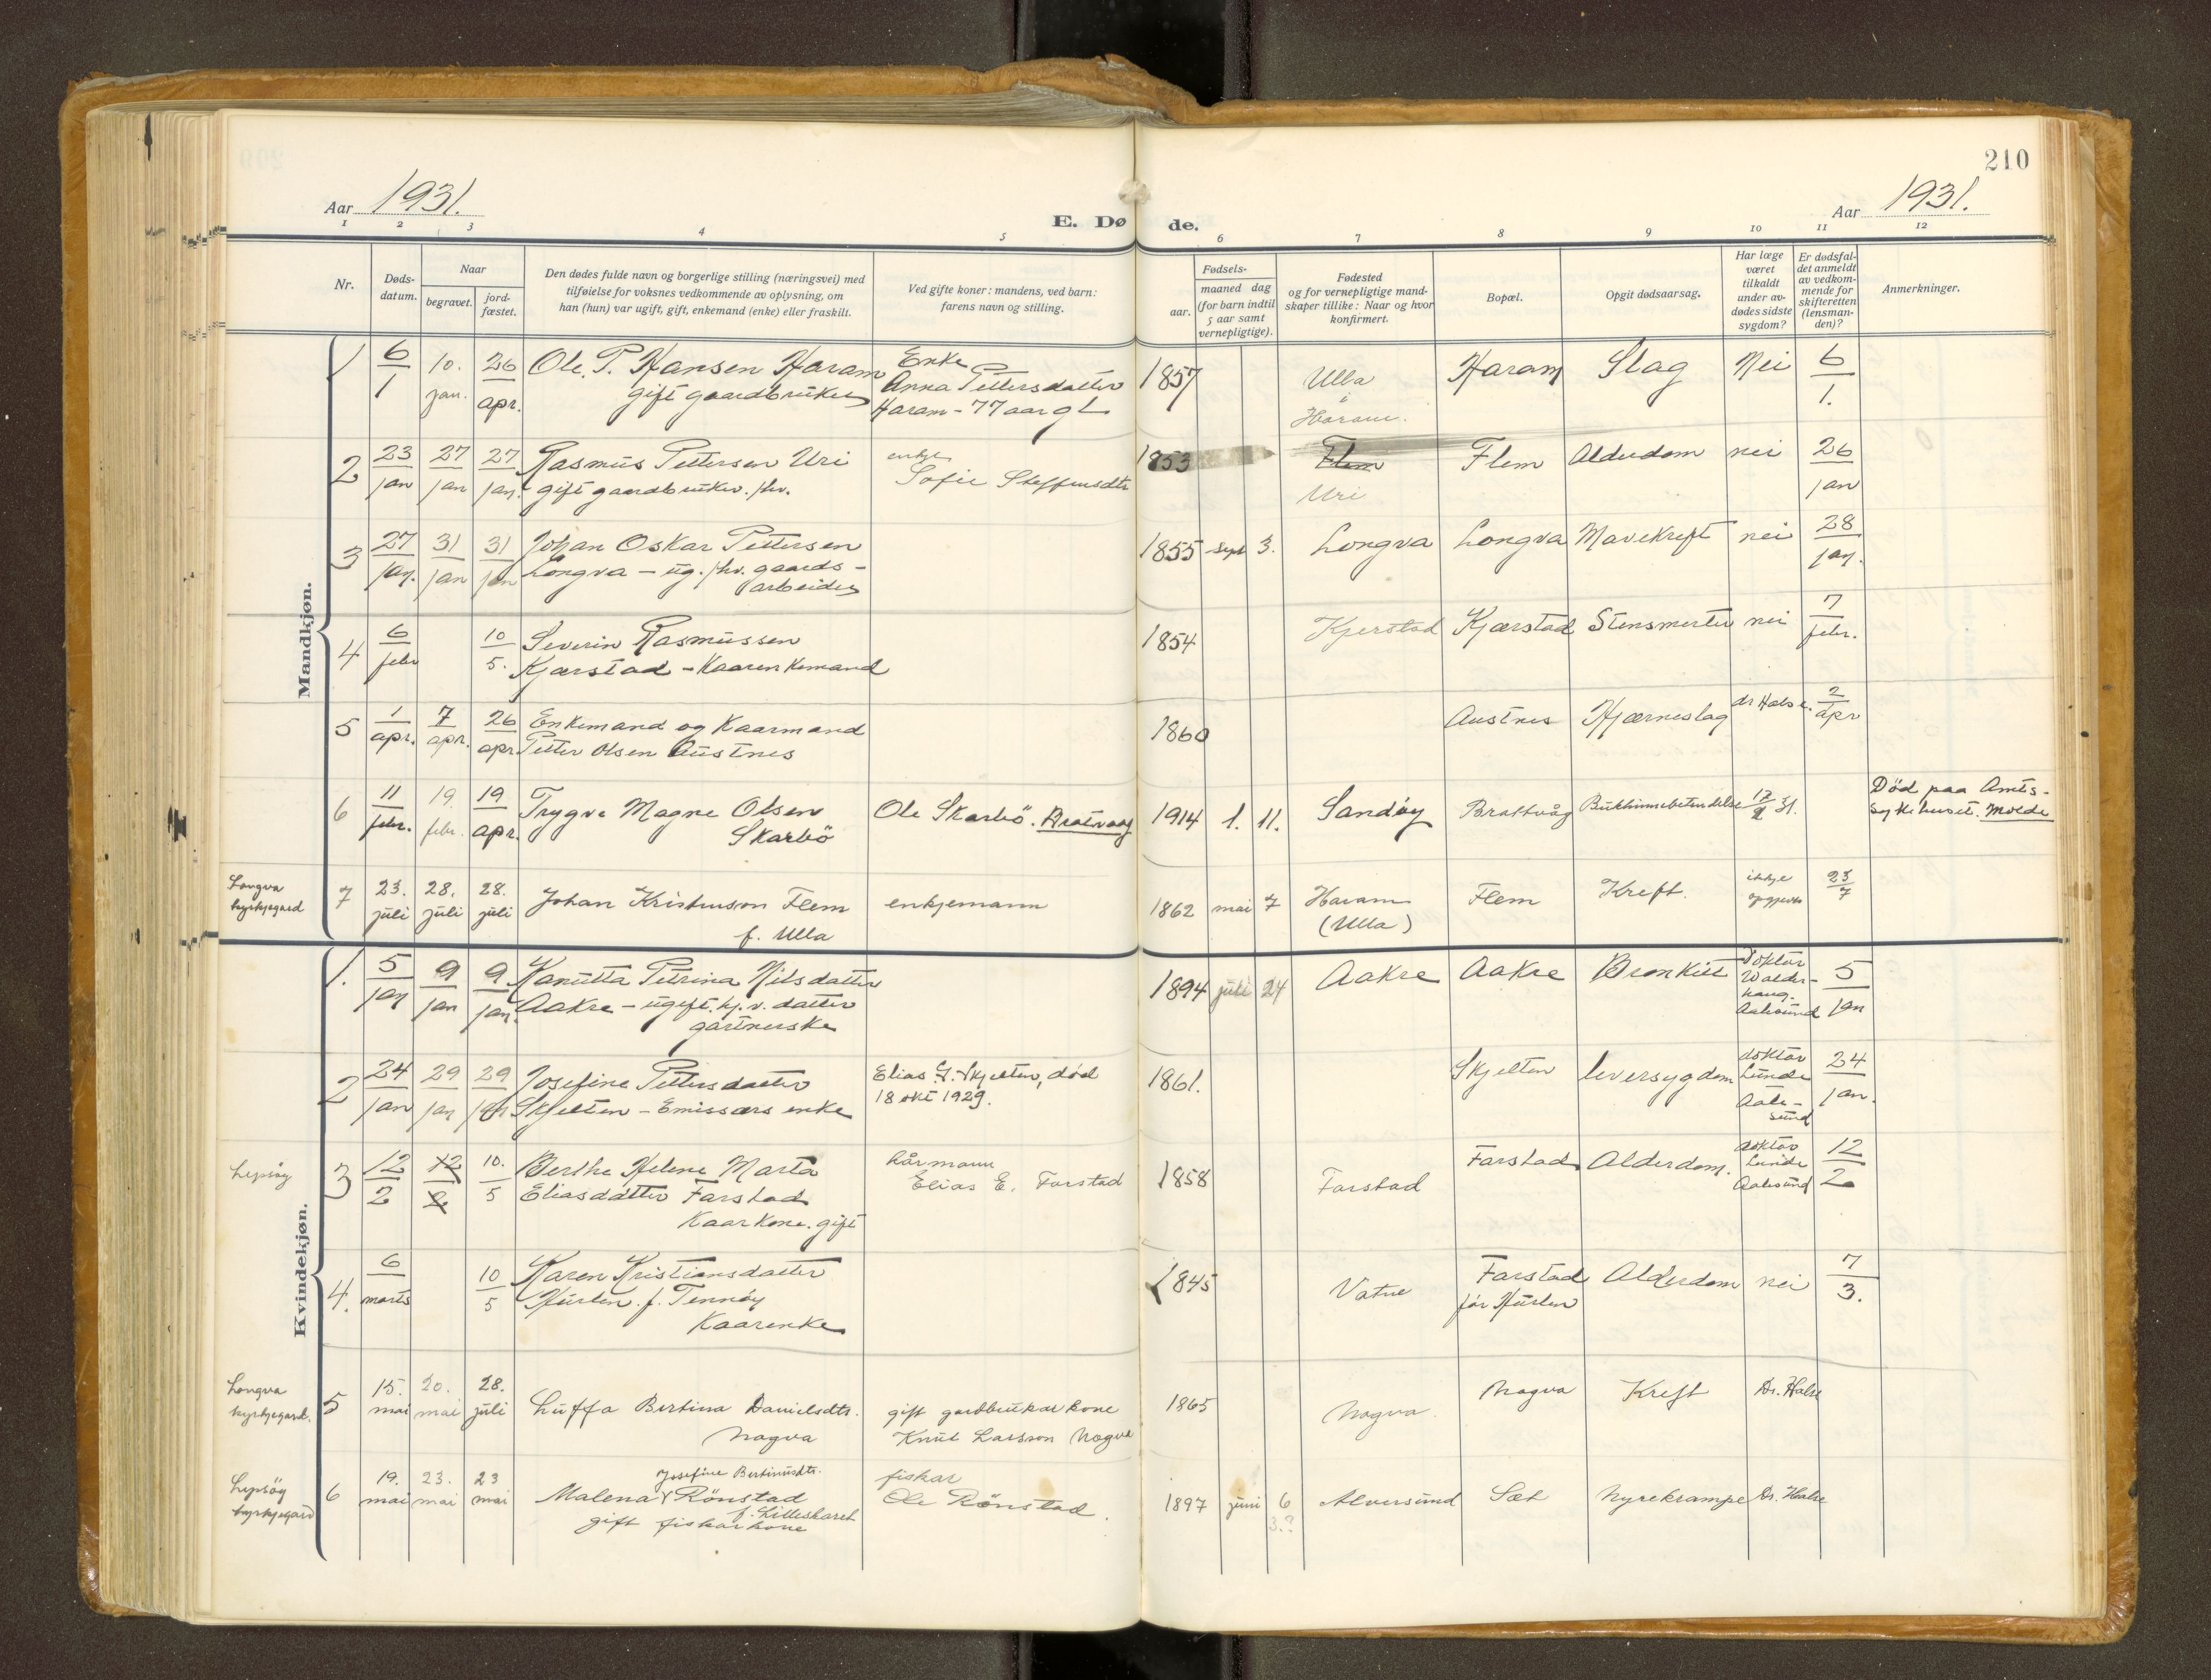 210
Aar 1931.
E. Døde.
Aar 1931.
1 2 3 4 5 6 7 8 9 10 11 12
Nr.
Døds-
datum.
Naar
begravet.
jord-
fæstet.
Den dødes fulde navn og borgerlige stilling (næringsvei) med
tilføielse for voksnes vedkommende av oplysning, om
han (hun) var ugift, gift, enkemand (enke) eller fraskilt.
Ved gifte koner: mandens, ved barn:
farens navn og stilling.
Fødsels-
aar.
maaned dag
(for barn indtil
5 aar samt
vernepligtige).
Fødested
og for vernepligtige mand-
skaper tillike: Naar og hvor
konfirmert.
Bopæl.
Opgit dødsaarsag.
Har læge
været
tilkaldt
under av-
dødes sidste
sygdom?
Er dødsfal-
det anmeldt
av vedkom-
mende for
skifteretten
(lensman-
den)?
Anmerkninger.
Mandkjøn.
1 6/1 10. jan. 26/apr. Ole. P. Hansen Haram
gift gaardbruker
Enke
Anna Pettersdatter
Haram - 77 aar gl
1857 Ulla
i
Haram.
Haram Slag Nei 6/1.
2 23/jan 27/jan 27/jan. Rasmus Pettersen Uri
gift gaardbruker. /hv.
enkje
Sofie Steffensdtr
1853 Flem
Uri
Flem Alderdom nei 26/jan
3 27/jan. 31/jan 31/jan Johan Oskar Pettersen
Longva - ug. /hv. gaards-
arbeider
1855 sept 3. Longva Longva Mavekreft nei 28/jan.
4 6/febr 10/5. Severin Rasmussen
Kjærstad - Kaarenkemand
1854 Kjerstad Kjærstad Stensmerter nei 7/febr.
5 1/apr. 7/apr. 26/apr. Enkemand og Kaarmand
Petter Olsen Austnes
1860 Austnes Hjærneslag dr Halse. 2/apr
6 11/febr. 19. febr. 19/apr. Trygve Magne Olsen
Skarbö
Ole Skarbö. Bratvaag
1914 1. 11. Sandøy Brattvåg Bukhinnebetendelse 12/2 31.
Död paa Amts-
sykehuset. Molde
Longva
kyrkjegard
7 23. juli 28. juli 28. juli Johan Kristenson Flem
f. Ulla
enkjemann
1862 mai 7 Haram
(Ulla)
Flem Kreft. ikkje
23/7
Kvindekjøn.
1. 5/jan 9/jan 9/jan. Kanutta Petrina Nilsdatter
Aakre - ugift. kj. v. datter
gartnerske
1894 juli 24 Aakre Aakre Bronkitt doktor
Walder-
haug.
Aalesund
5/jan
2 24/jan 29/jan 29/jan Josefine Pettersdatter
Skjelten - Emissærs enke
Elias G. Skjelten, død
18 okt 1929.
1861. Skjelten leversygdom doktor
Lunde
Aale-
sund
24/jan.
Lepsøy
3 12/2 12/2 10./5 Berthe Helene Marta
Eliasdatter Farstad
Kaarkone. gift
kårmann
Elias E. Farstad
1858 Farstad Farstad Alderdom. doktor
Lunde
Aalesund
12/2
4. 6/marts 10/5 Karen Kristiansdatter
Hurlen. f. Tennøy
Kaarenke
1845 Vatne Farstad
før Hurlen
Alderdom nei 7/3.
Longva
kyrkjegard.
5 15. mai 20. mai 28. juli Luffa Bertina Danielsdtr.
Nogva
gift gardbrukar kone
Knut Larsson Nogva
1865 Nogva. Nogva Kreft Dr. Halse
Lepsöy
kyrkjegard
6 19. mai 23. mai 23 mai Josefine Bertinusdtr.
Malena Rönstad
f. Lilleskaret
gift fiskarkone
fiskar
Ole Rönstad.
1897 juni 6
3.?
Alversund Sæt Nyrekrampe Dr. Halse